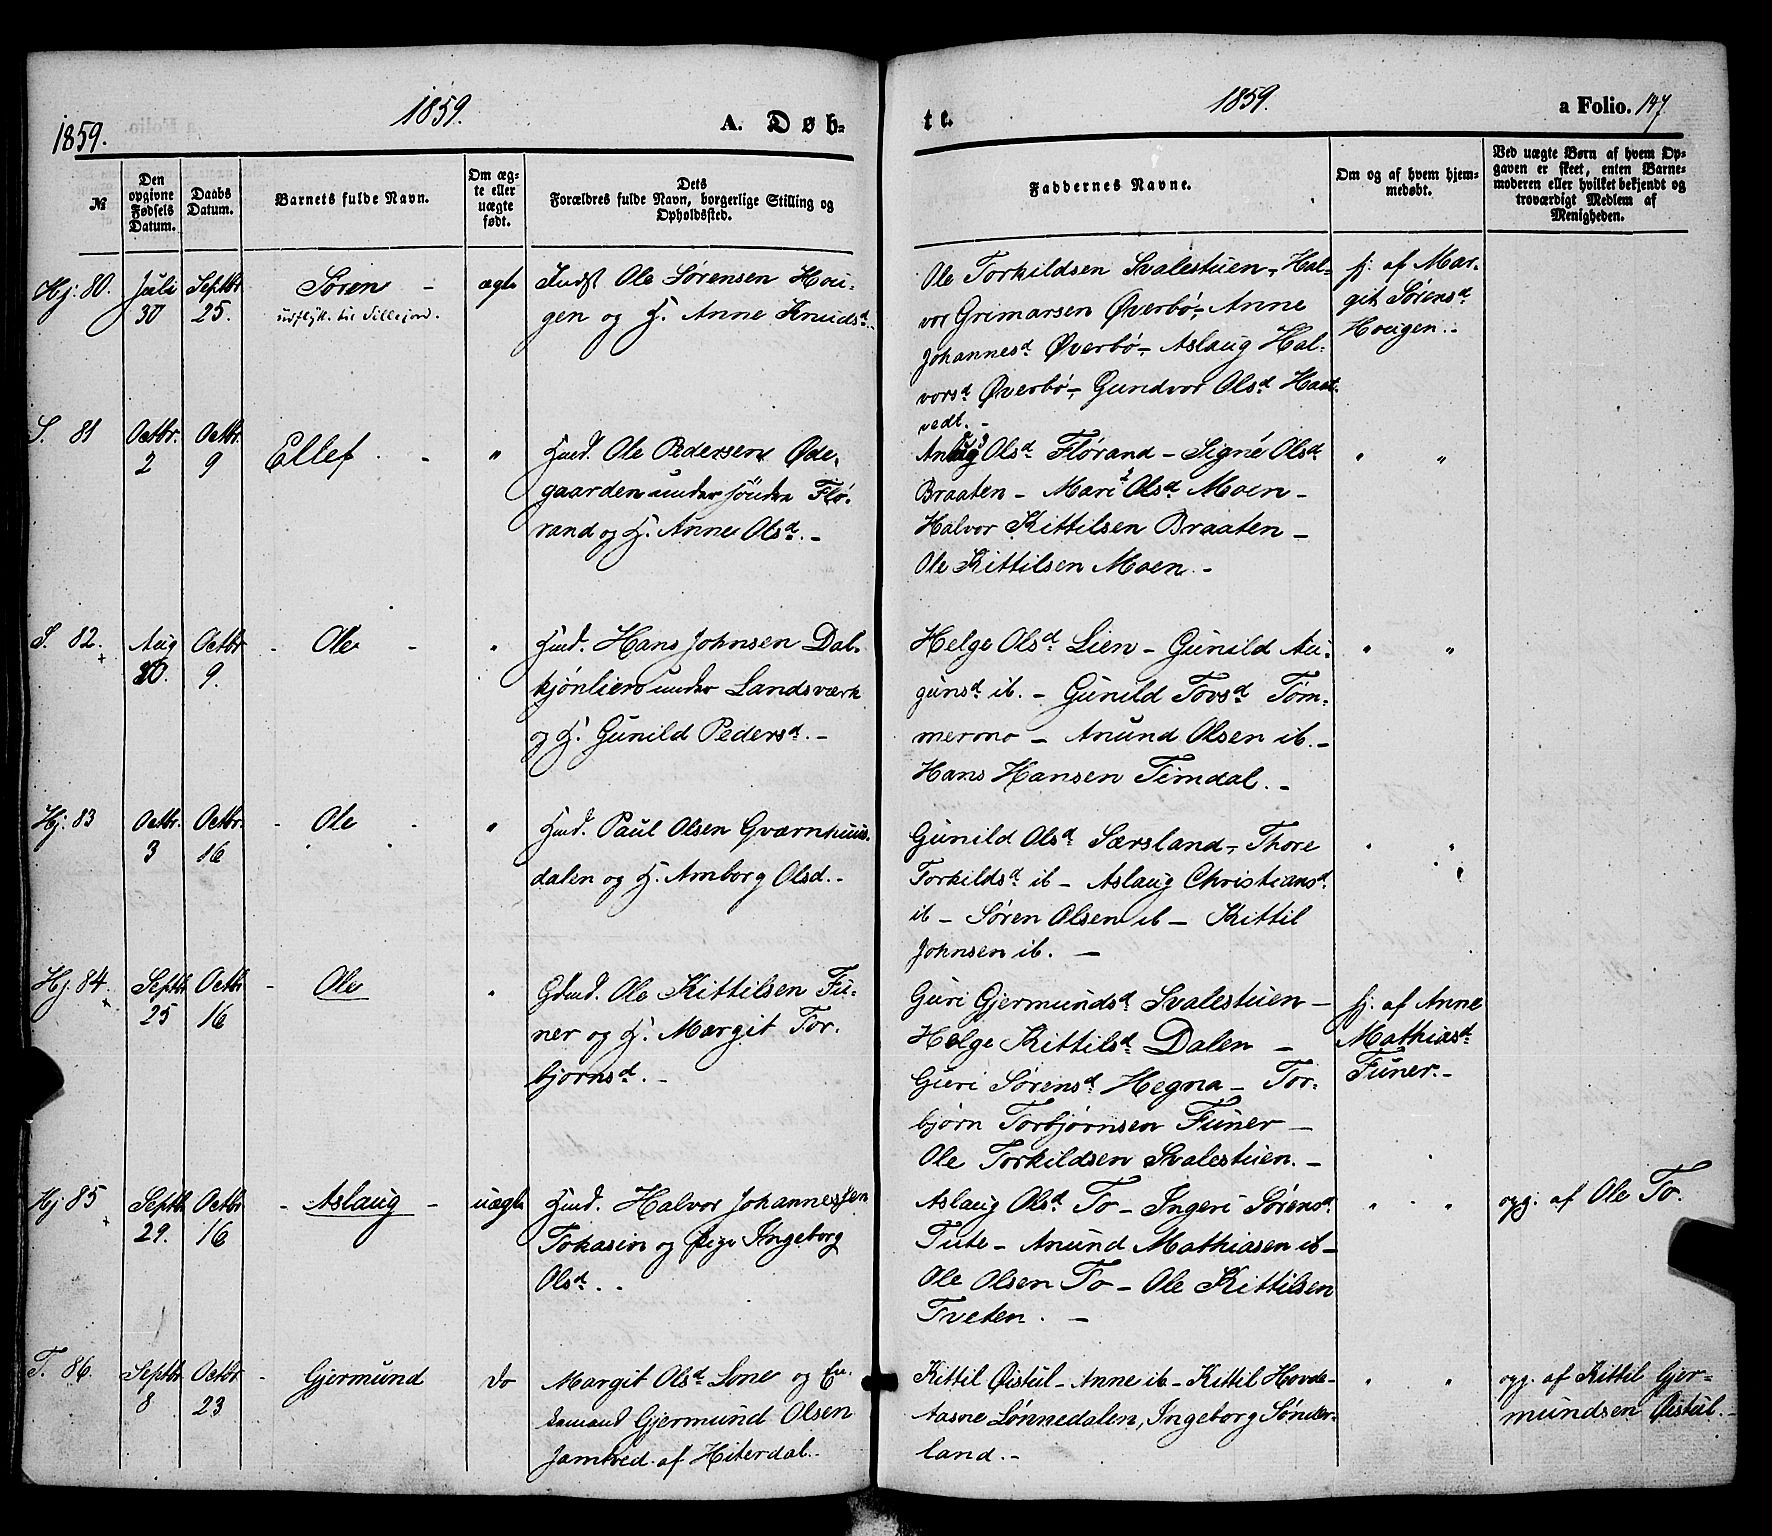 1859.
1859.
A. Døb-
№
Den opgivne Fødsels Datum.
Daabs Datum.
Barnets fulde Navn.
Om ægte eller uægte født.
Dets Forældres fulde Navn, borgerlige Stilling og Opholdssted.
Hj. 80.
Juli 30
Septbr 25.
Søren -
udflytt. til Sillejord.
ægte
Indst Ole Sørensen Hou-
gen og H. Anne Knudsd.
S. 81
Octbr. 2
Octbr. 9
Ellef
"
Hmd. Ole Pedersen Øde-
gaarden under søndre Flø-
rand og H. Anne Olsd. -
S. 82.
Aug 20.
Octbr 9.
- Ole -
"
Hmd. Hans Johnsen Dal-
kjønlien under Landsværk
og H. Gunild Pedersd. -
Hj. 83
Octbr. 3
Octbr. 16
- Ole -
"
Hmd. Paul Olsen Gværnhuus-
dalen og H. Amborg Olsd. -
Hj. 84.
Septbr 25
Octbr 16
- Ole
"
Gbmd. Ole Kittilsen Fu-
ner og H. Margit Tor-
bjørnsd. -
Hj 85
Septbr 29.
Octbr 16
- Aslaug -
uægte
Hmd. Halvor Johannessen
Tokasin og pige Ingeborg
Olsd. -
T. 86.
Septbr 8
Octbr 23
- Gjermund
do
Margit Olsd. Lone og En-
kemand Gjermund Olsen
Jamtved af Hiterdal. -
1859.
te.
a Folio. 147.
Faddernes Navne.
Om og af hvem hjem-
medøbt.
Ved uægte Børn af hvem Op-
gaven er skeet, enten Barne-
moderen eller hvilket bekjendt og
troværdigt Medlem af
Menigheden.
Ole Torkildsen Svalestuen, Hal-
vor Grimarsen Øverbø, Anne
Johannesd. Øverbø, Aslaug Hal-
vorsd. Øverbø, Gundvor Olsd. Haat-
vedt. -
hj. af Mar-
git Sørensd.
Hougen. -
Olsd. Flørand - Signe Olsd.
Braaten - Mari Olsd. Moen -
Halvor Kittilsen Braaten -
Ole Kittilsen Moen. -
" "
Helge Olsd. Lien - Gunild Au-
gunsd. ib. - Gunild Tovsd. Tøm-
mermo - Anund Olsen ib. -
Hans Hansen Temdal. -
" "
Gunild Olsd. Særsland, Thore
Torkildsd. ib - Aslaug Christiansd.
ib - Søren Olsen ib - Kittil
Johnsen ib. -
" "
Guri Gjermundsd. Svalestuen -
Helge Kittilsd. Dalen -
Guri Sørensd. Hegna - Tor-
bjørn Torbjørnsen Funer -
Ole Torkildsen Svalestuen. -
hj. af Anne
Mathiasd.
Funer. -
Aslaug Olsd. To - Ingeri Sørensd.
Tute - Anund Mathiasen ib -
Ole Olsen To - Ole Kittilsen
Tveten. -
" "
opg. af Ole To.
Kittil Øistul - Anne ib - Kittil Hovde-
Aasne Lønnedalen, Ingeborg Sønder-
land. -
" "
opg. af Kittil Gjer-
mundsen Øistul. -